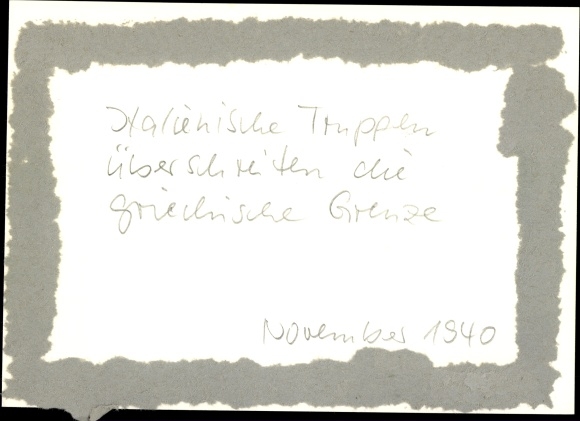 Italienische Truppen
überschreiten die
griechische Grenze
November 1940